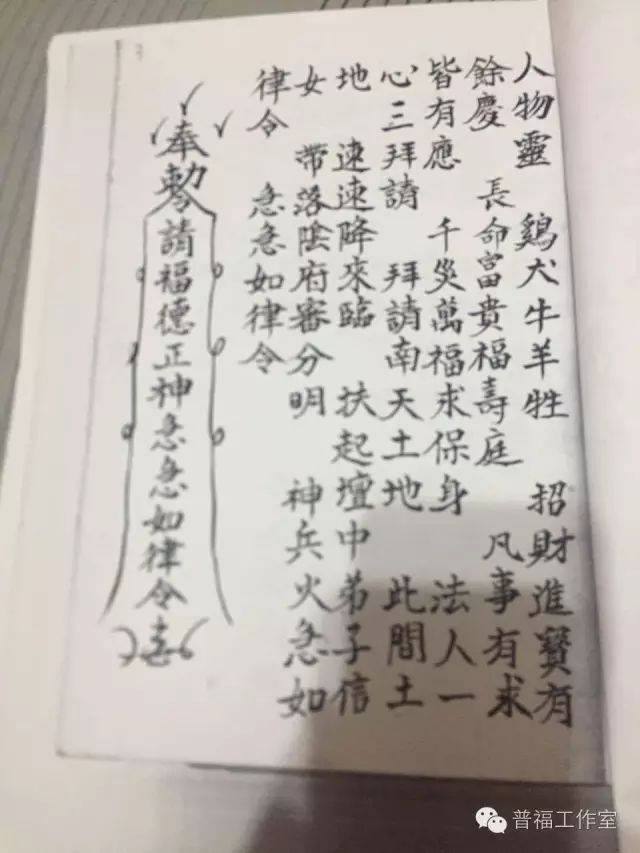 人物靈 鷄犬牛羊牲 招財進寶有
餘慶 長命富貴福壽庭 凡事有求
皆有應 千災萬福求保身 法人一
心三拜請 拜請南天土地 此間土
地 速速降來臨 扶起壇中弟子信
女 帶落陰府審分明 神兵火急如
律令 急急如律令
奉勅令請福德正神急急如律令
普福工作室